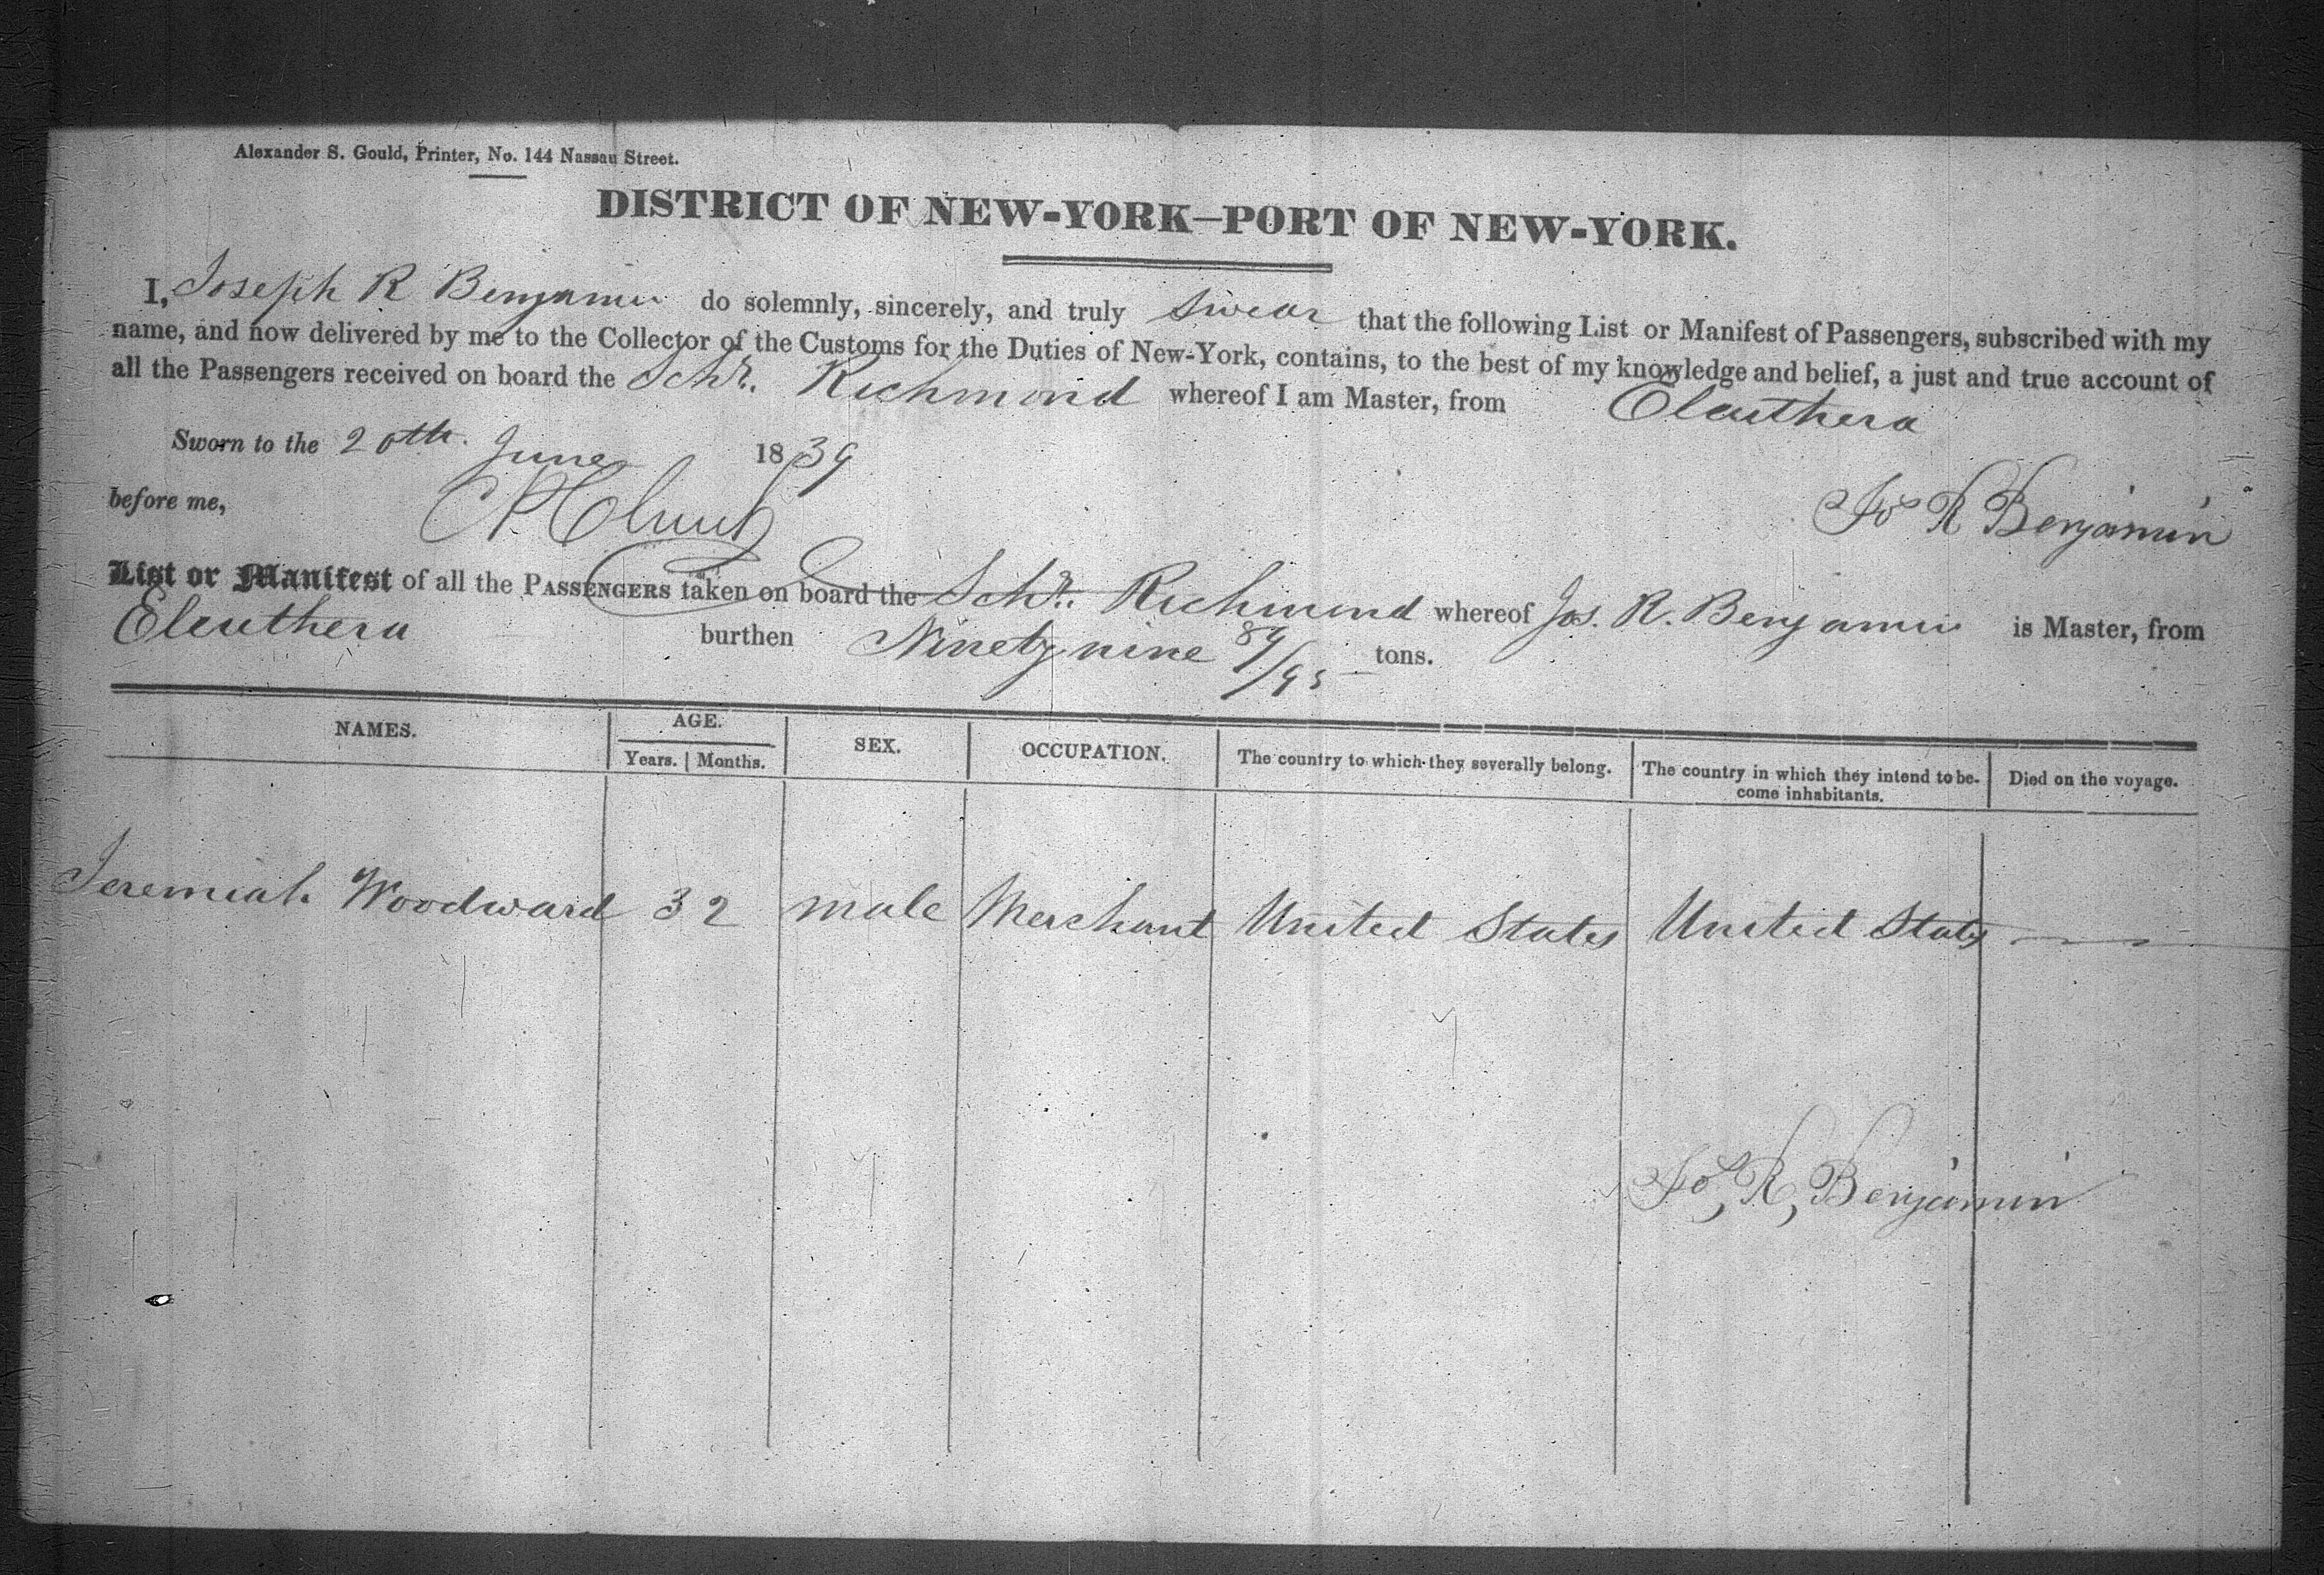 Alexander S. Gould, Printer, No. 144 Nassau Street.
DISTRICT OF NEW-YORK—PORT OF NEW-YORK.
I, Joseph R Benjamin do solemnly, sincerely, and truly swear that the following List or Manifest of Passengers, subscribed with my
name, and now delivered by me to the Collector of the Customs for the Duties of New-York, contains, to the best of my knowledge and belief, a just and true account of
all the Passengers received on board the Schr. Richmond whereof I am Master, from Eleuthera
Sworn to the 20th. June 1839
before me,
Jos R Benjamin
List or Manifest of all the PASSENGERS taken on board the Schr. Richmond whereof Jos. R. Benjamin is Master, from
Eleuthera burthen Ninety nine 89/95 tons.
NAMES. AGE. SEX. OCCUPATION. The country to which they severally belong. The country in which they intend to be- Died on the voyage.
Years. Months. come inhabitants.
Jeremiah Woodward 32 male Merchant United States United States
Jos, R, Benjamin